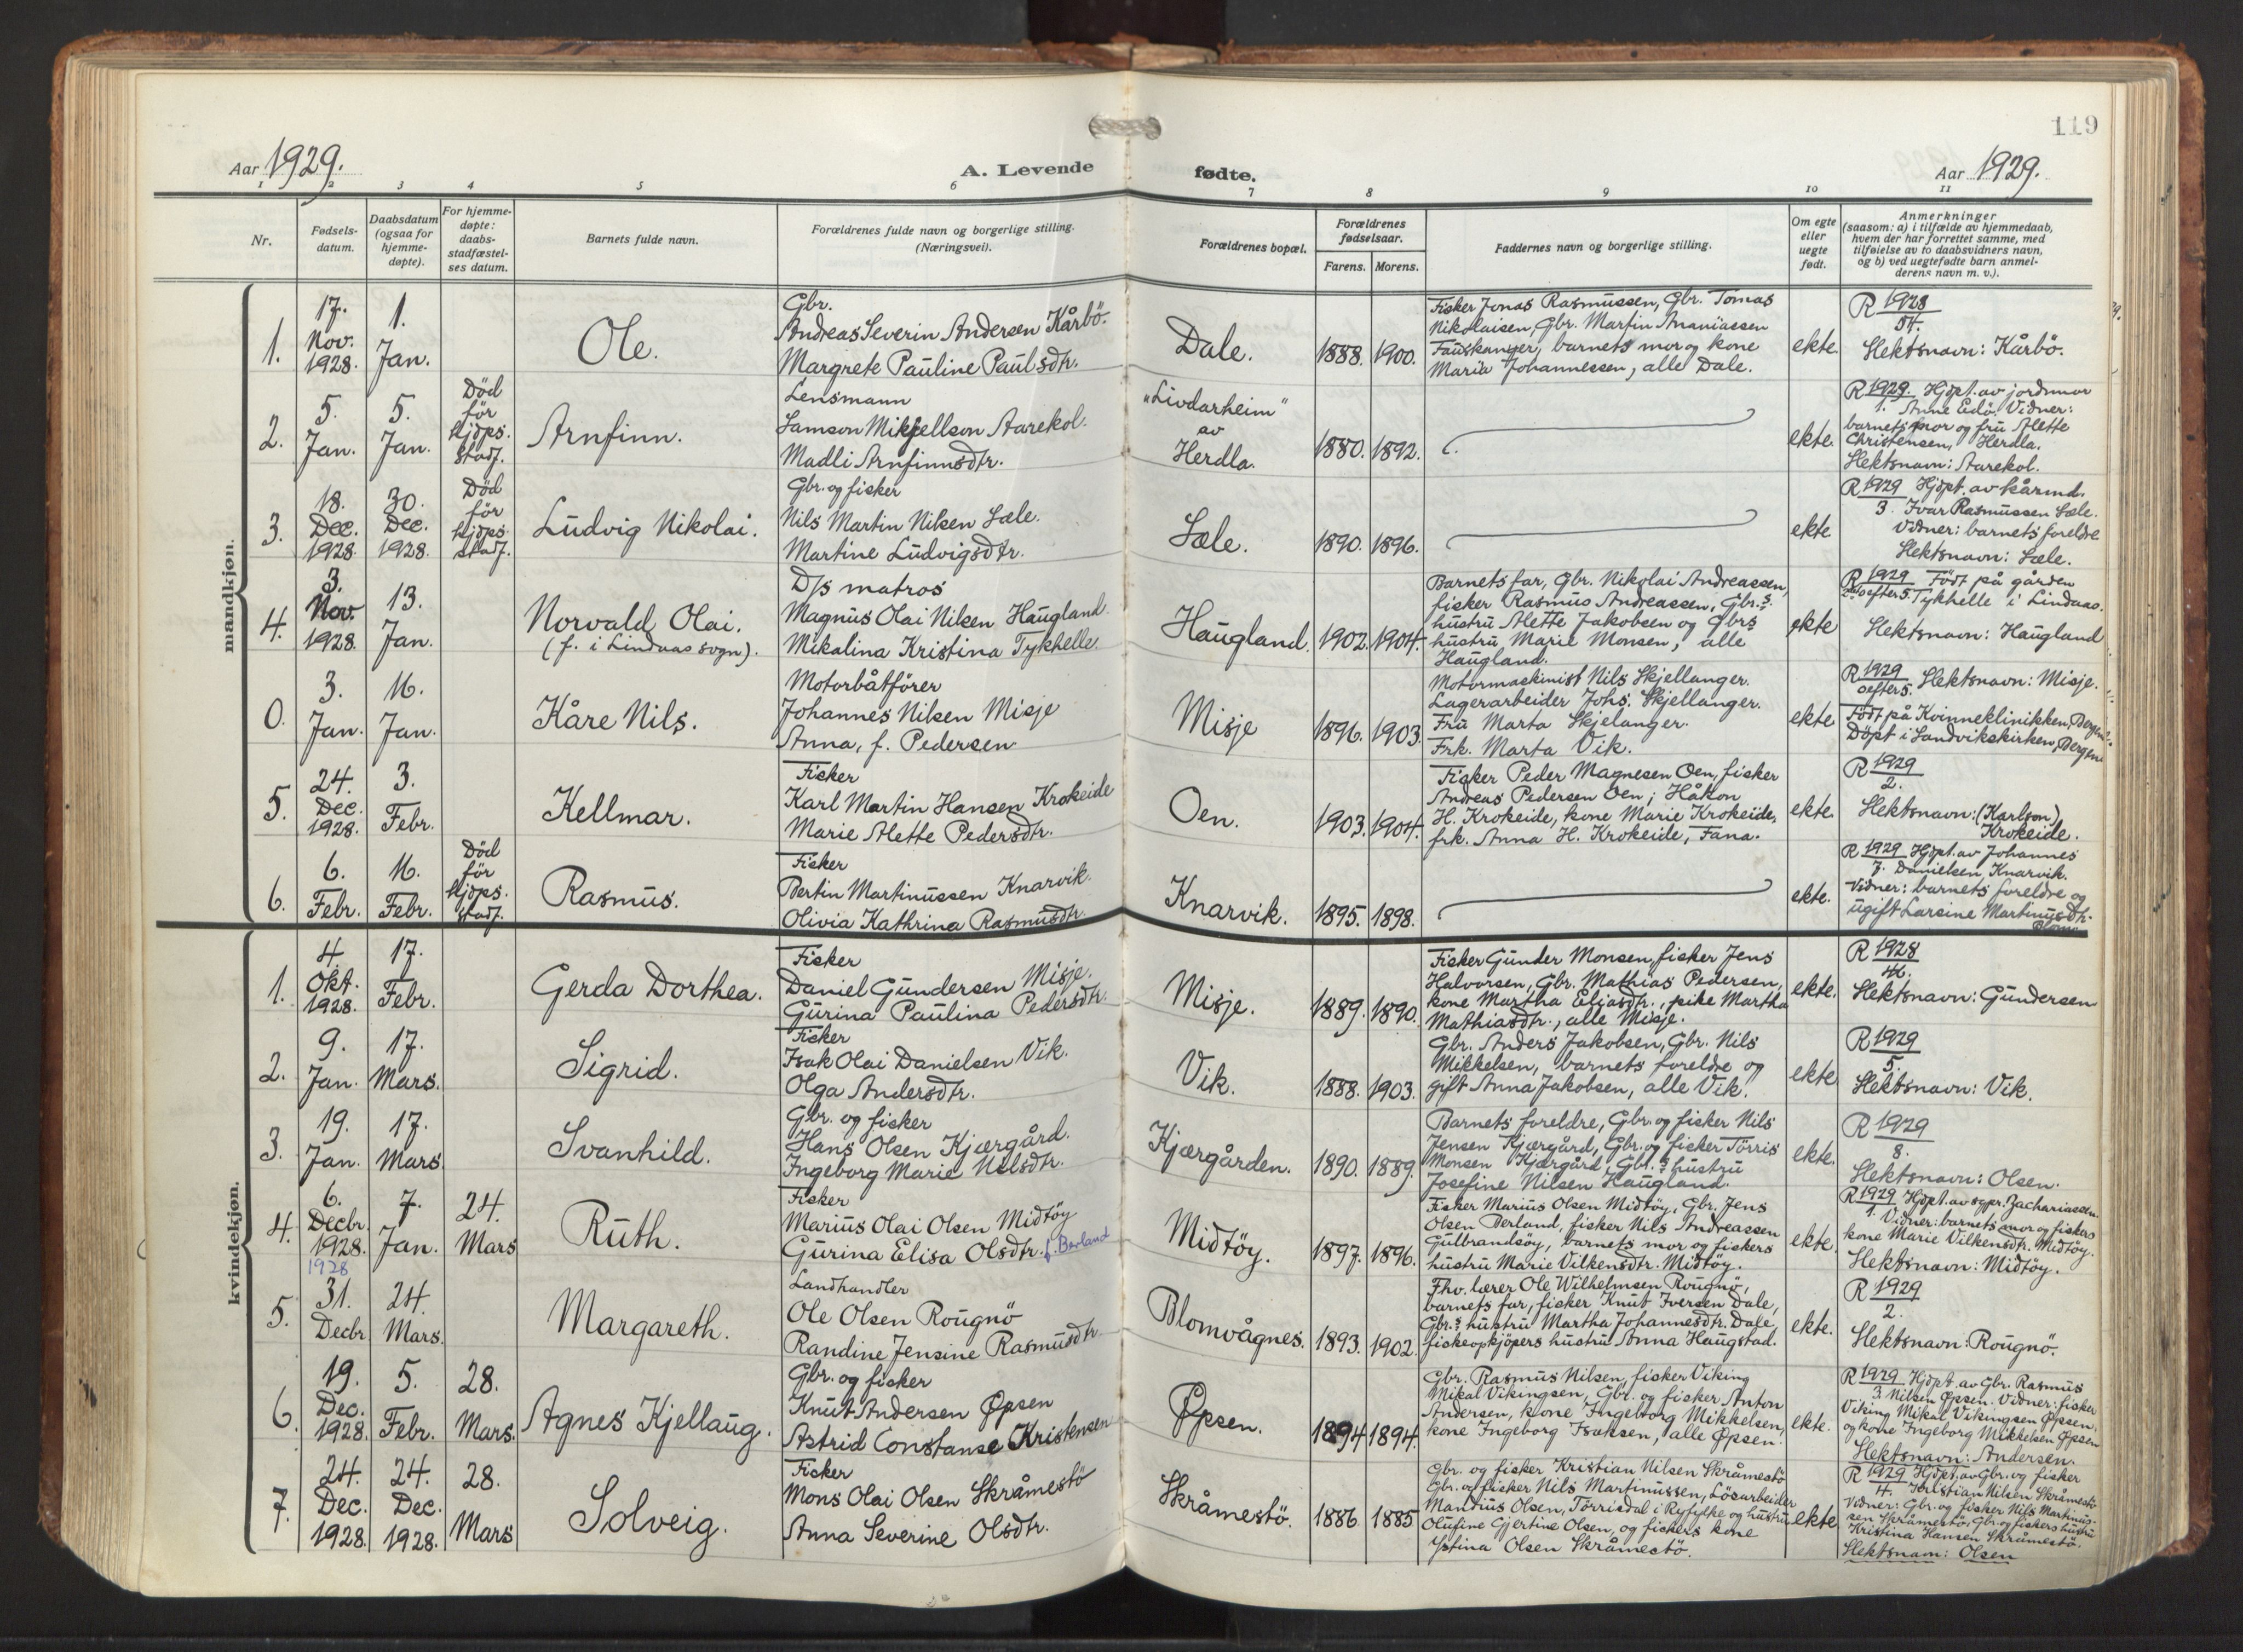 119
Aar 1929.
A. Levende
fødte.
Aar 1929.
1 2 3 4 5 6 7 8 9 10 11
Nr.
Fødsels-
datum.
Daabsdatum
(ogsaa for
hjemme-
døpte).
For hjemme-
døpte:
daabs-
stadfæstel-
ses datum.
Barnets fulde navn.
Forældrenes fulde navn og borgerlige stilling.
(Næringsvei).
Forældrenes bopæl.
Forældrenes
fødselsaar.
Farens. Morens.
Faddernes navn og borgerlige stilling.
Om egte
eller
uegte
født.
Anmerkninger
(saasom: a) i tilfælde av hjemmedaab,
hvem der har forrettet samme, med
tilføielse av to daabsvidners navn,
og b) ved uegtefødte barn anmel-
derens navn m. v.).
mandkjøn.
1.
17.
Nov.
1928.
1.
Jan.
Ole.
Gbr.
Andreas Severin Andersen Kårbö.
Margrete Pauline Paulsdtr.
Dale.
1888. 1900.
Fisker Jonas Rasmussen, Gbr. Tomas
Nikolaisen, Gbr. Martin Ananiassen
Fauskanger, barnets mor og kone
Maria Johannessen, alle Dale.
ekte.
R 1928
54.
Slektsnavn: Kårbö.
2.
5.
Jan.
5.
Jan.
Död
för
Hjdps.
stadf.
Arnfinn.
Lensmann
Samson Mikjellson Aarekol.
Madli Arnfinnsdtr.
"Livdarheim"
av
Herdla.
1880. 1892.
ekte.
R 1929. Hjdpt. av jordmor
1. Anne Eidö. Vidner:
barnets mor og fru Alette
Christensen, Herdla.
Slektsnavn: Aarekol.
3.
18.
Dec.
1928.
30.
Dec.
1928.
Död
för
Hjdps.
stadf.
Ludvig Nikolai.
Gbr. og fisker
Nils Martin Nilsen Sæle.
Martine Ludvigsdtr.
Sæle.
1890. 1896.
ekte
R 1929 Hjdpt. av kårmd.
3. Ivar Rasmussen Sæle.
Vidner: barnets foreldre
Slektsnavn: Sæle.
4.
3.
Nov.
1928.
13.
Jan.
Norvald Olai.
(f. i Lindaas sogn).
D/s matros
Magnus Olai Nilsen Haugland.
Mikalina Kristina Tykhelle.
Haugland.
1902. 1904.
Barnets far, Gbr. Nikolai Andreassen,
fisker Rasmus Andreassen, Gbr.s
hustru Alette Jakobsen og Gbrs
hustru Marie Monsen, alle
Haugland.
ekte
R 1929 Född på gården
oefter 5. Tykhelle i Lindaas.
Slektsnavn: Haugland
0.
3.
Jan.
16.
Jan.
Kåre Nils.
Motorbåtförer
Johannes Nilsen Misje
Anna, f. Pedersen.
Misje
1896. 1903.
Motormaskinist Nils Skjellanger.
Lagerarbeider Johs. Skjellanger.
Fru Marta Skjelanger.
Frk. Marta Vik.
ekte
R 1929
oefter 5. Slektsnavn: Misje.
Född på Kvinneklinikken, Bergen
Döpt i Sandvikskirken, Bergen
5.
24.
Dec.
1928.
3.
Febr.
Kellmar.
Fisker
Karl Martin Hansen Krokeide
Marie Alette Pedersdtr.
Oen.
1903. 1904.
Fisker Peder Magnesen Oen, fisker
Andreas Pedersen Oen; Håkon
H. Krokeide, kone Marie Krokeide,
frk. Anna H. Krokeide, Fana.
ekte.
R 1929
2.
Slektsnavn: (Karlson)
Krokeide.
6.
6.
Febr.
16.
Febr.
Död
för
Hjdps.
stadf.
Rasmus.
Fisker
Bertin Martinussen Knarvik.
Olivia Kathrina Rasmusdtr.
Knarvik.
1895. 1898.
ekte.
R 1929 Hjdpt. av Johannes
7. Danielsen, Knarvik.
Vidner: barnets foreldre og
ugift Larsine Martinusdtr.
Blomö
kvindekjøn.
1.
4.
Okt.
1928.
17.
Febr.
Gerda Dorthea.
Fisker
Daniel Gundersen Misje.
Gurina Paulina Pedersdtr.
Misje.
1889. 1890.
Fisker Gunder Monsen, fisker Jens
Halvorsen, Gbr. Mathias Pedersen,
kone Martha Eliasdtr., pike Martha
Mathiasdtr., alle Misje.
ekte.
R 1928
46.
Slektsnavn: Gundersen
2.
9.
Jan.
17.
Mars.
Sigrid.
Fisker
Isak Olai Danielsen Vik.
Olga Andersdtr.
Vik.
1888. 1903.
Gbr. Anders Jakobsen, Gbr. Nils
Mikkelsen, barnets foreldre og
gift Anna Jakobsen, alle Vik.
ekte
R 1929
5.
Slektsnavn: Vik.
3.
19.
Jan.
17.
Mars
Svanhild.
Gbr. og fisker
Hans Olsen Kjærgård.
Ingeborg Marie Nilsdtr.
Kjærgården.
1890. 1889.
Barnets foreldre, Gbr. og fisker Nils
Jensen Kjærgård, Gbr. og fisker Törris
Monsen Kjærgård, Gbr.s hustru
Josefine Nilsen Haugland.
ekte.
R 1929
8.
Slektsnavn: Olsen.
4.
6.
Decbr.
1928.
7.
Jan.
24.
Mars
Ruth.
Fisker
Marius Olai Olsen Midtöy
Gurina Elisa Olsdtr. f. Berland
Midtöy.
1897. 1896.
Fisker Marius Olsen Midtöy, Gbr. Jens
Olsen Berland, fisker Nils Andreassen
Gulbrandsöy, barnets mor og fiskers
hustru Marie Vilkensdtr. Midtöy.
ekte.
R 1929 Hjdpt. av sgpr. Zachariassen.
1. Vidner: barnets mor og fiskers
kone Marie Vilkensdtr. Midtöy.
Slektsnavn: Midtöy.
5.
1928
31.
Decbr.
24.
Mars.
Margareth.
Landhandler
Ole Olsen Rougnö
Randine Jensine Rasmusdtr.
Blomvågnes.
1893. 1902.
Fhv. lærer Ole Wilhelmsen Rougnö,
barnets far, fisker Knut Iversen Dale,
Gbr.s hustru Martha Johannesdtr. Dale,
fiskeopkjöpers hustru Anna Haugstad.
ekte.
R 1929
2.
Slektsnavn: Rougnö.
6.
19.
Dec.
1928.
5.
Febr.
28.
Mars.
Agnes Kjellaug.
Gbr. og fisker
Knut Andersen Øpsen
Astrid Constanse Kristensen
Øpsen.
1894 1894.
Gbr. Rasmus Nilsen, fisker Viking
Mikal Vikingsen, Gbr. og fisker Anton
Andersen, kone Ingeborg Mikkelsen,
kone Ingeborg Isaksen, alle Øpsen.
ekte.
R 1929 Hjdpt. av Gbr. Rasmus
3. Nilsen Øpsen. Vidner: fisker
Viking Mikal Vikingsen Øpsen,
og kone Ingeborg Mikkelsen Øpsen
Slektsnavn: Andersen.
7.
24.
Dec.
1928.
24.
Dec.
1928.
28.
Mars
Solveig.
Fisker
Mons Olai Olsen Skråmestö
Anna Severine Olsdtr.
Skråmestö.
1886. 1885
Gbr. og fisker Kristian Nilsen Skråmestö,
Gbr. og fisker Nils Martinussen, Lösarbeider
Mandius Olsen, Törrisdal i Ryfylke og hustru
Olufine Gjertine Olsen, og fiskers kone
Ystina Olsen Skråmestö.
ekte
R 1929 Hjdpt. av Gbr. og fisker
4. Kristian Nilsen Skråmestö
Vidner: Gbr. og fisker Nils Martinus-
sen Skråmestö, Gbr. og fiskers hustru
Kristina Hansen Skråmestö.
Slektsnavn: Olsen